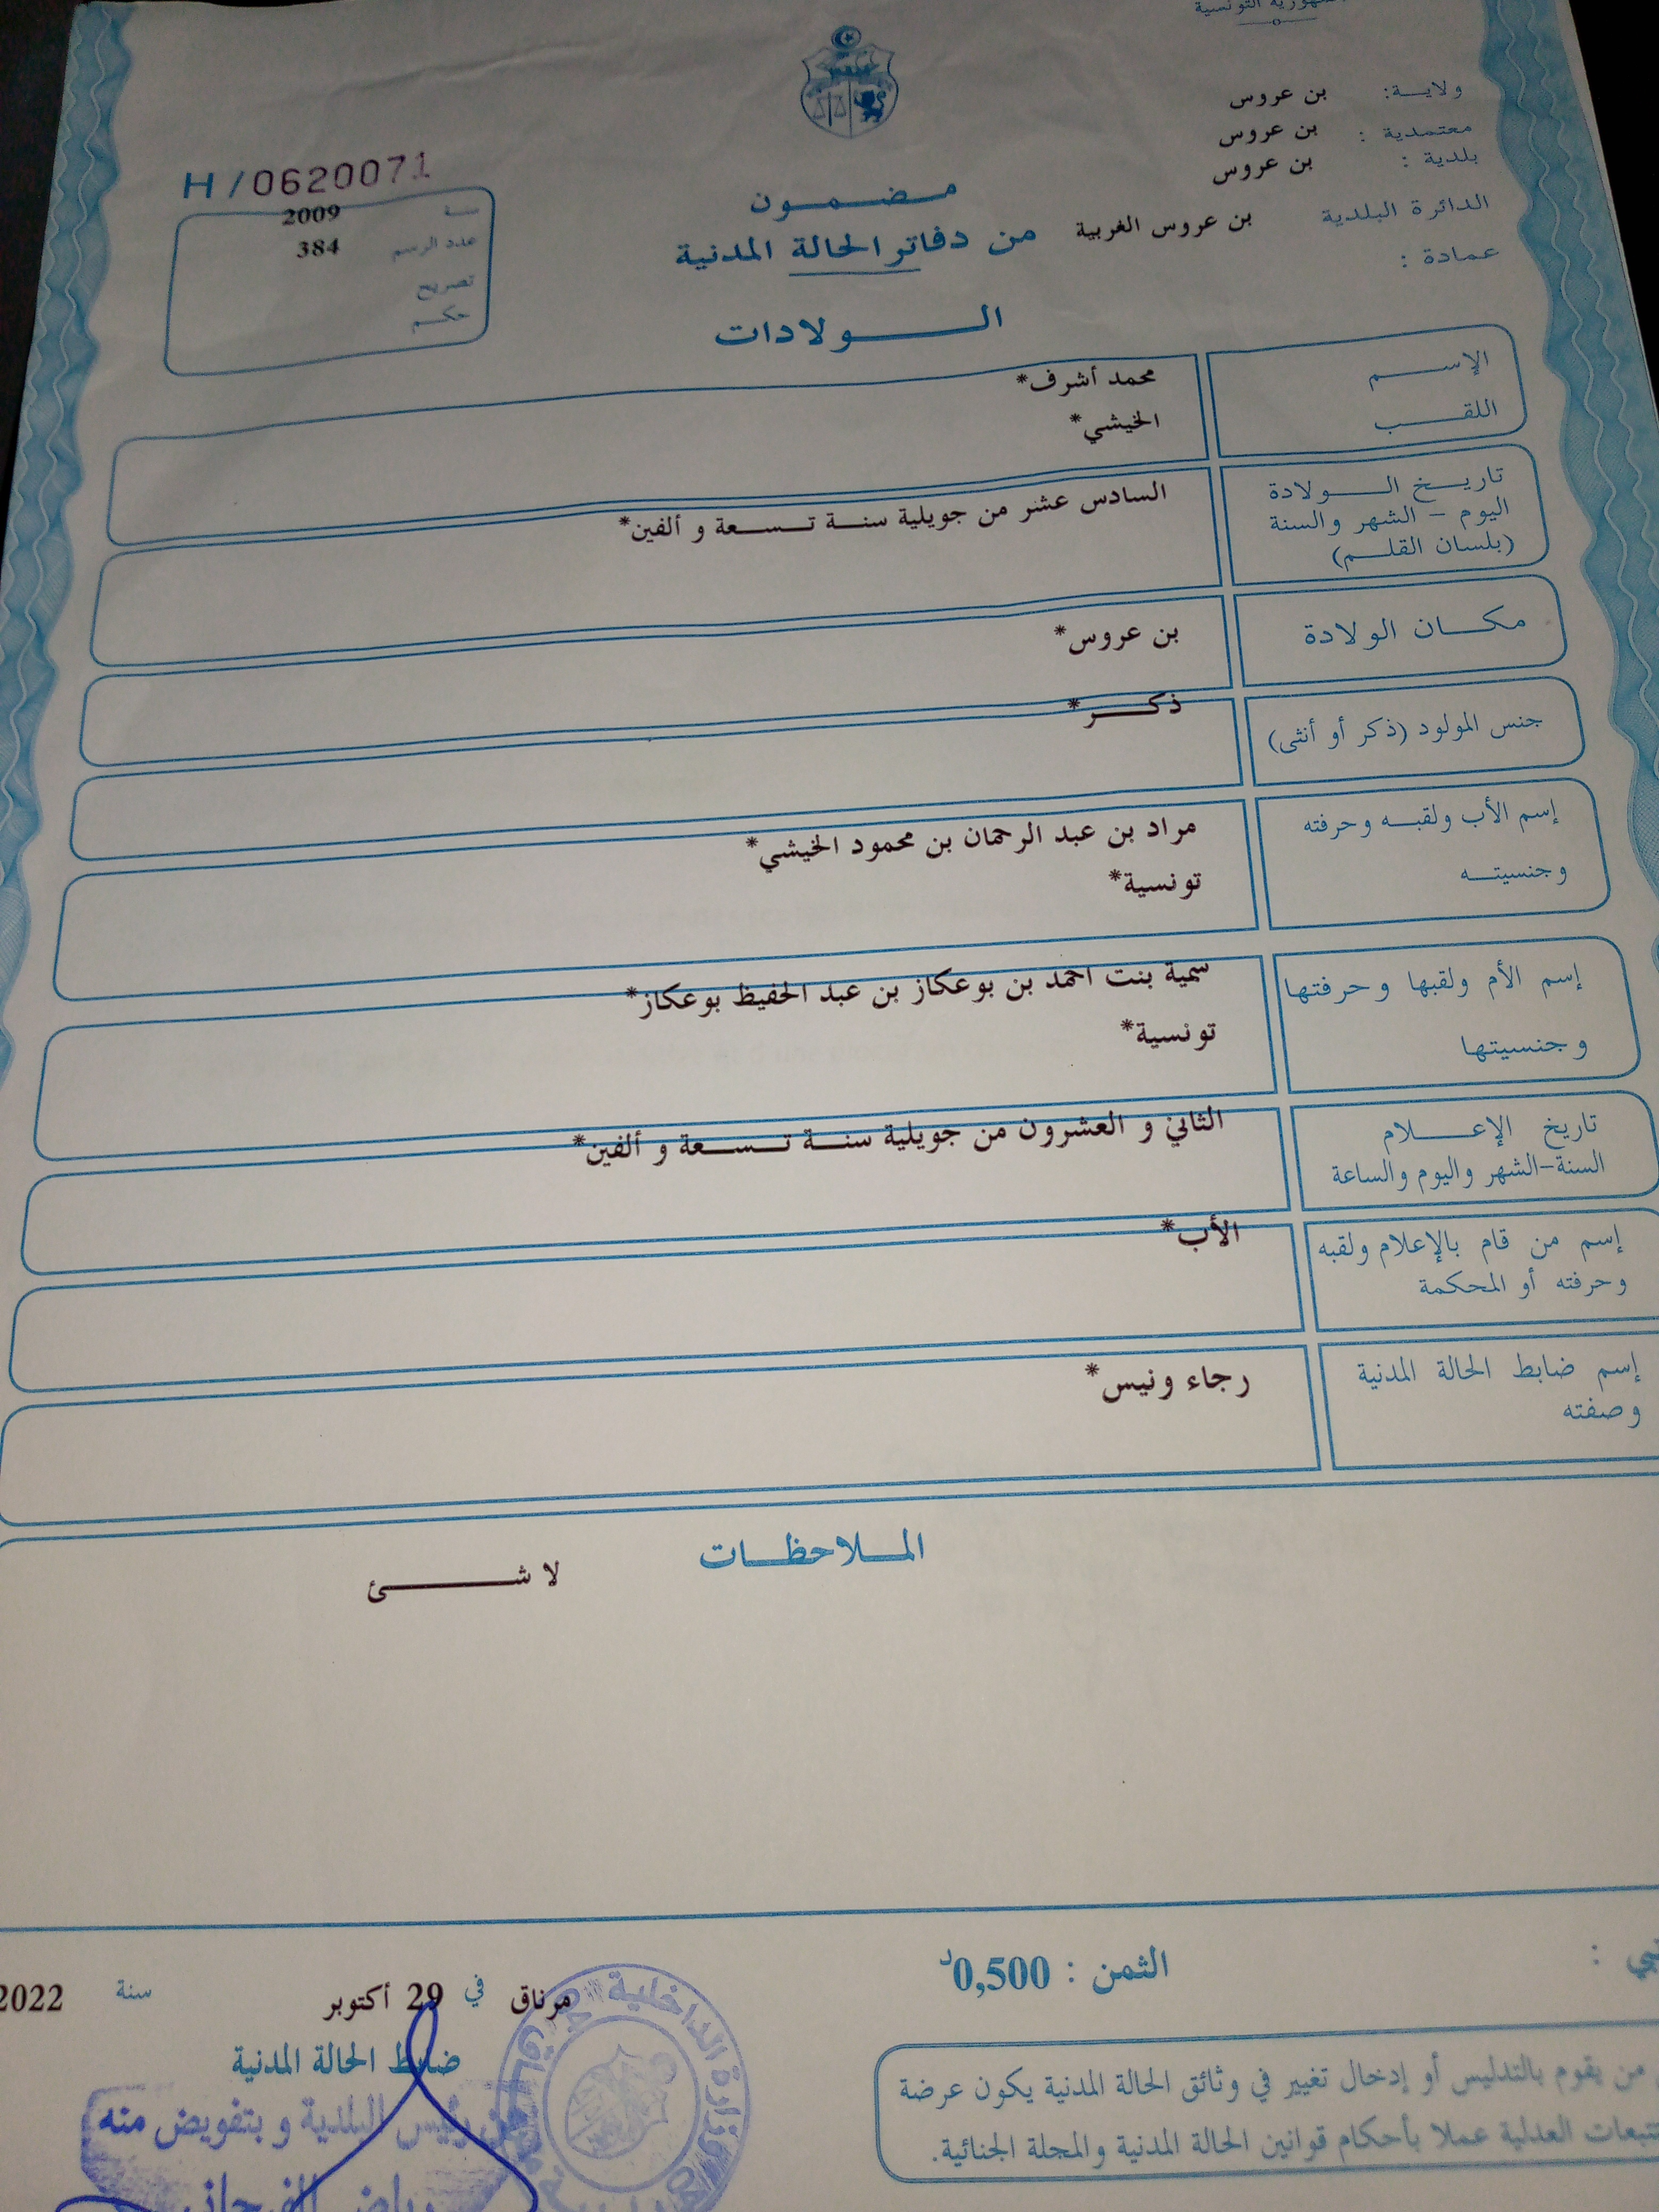 التونسية
ولايـــة: بن عروس
معتمدية : بن عروس
بلدية : بن عروس
الدائرة البلدية بن عروس الغربية
عمادة :
H/0620071
سنة 2009
عدد الرسم 384
تصريح
حكـم
مـضـمـون
من دفاتر الحالة المدنية
الـولادات
الإسـم محمد أشرف*
اللقـب الخيشي*
تاريـخ الـولادة
اليوم - الشهر والسنة
(بلسان القلـم)
السادس عشر من جويلية سنـة تـسـعة و ألفين*
مكـان الولادة بن عروس*
جنس المولود (ذكر أو أنثى) ذكـر*
إسم الأب ولقبـه وحرفته مراد بن عبد الرحمان بن محمود الخيشي*
وجنسيتـه تونسية*
إسم الأم ولقبها وحرفتها سمية بنت احمد بن بوعكاز بن عبد الحفيظ بوعكاز*
وجنسيتها تونسية*
تاريخ الإعـلام
السنة-الشهر واليوم والساعة
الثاني و العشرون من جويلية سنـة تـسـعة و ألفين*
إسم من قام بالإعلام ولقبه الأب*
وحرفته أو المحكمة
إسم ضابط الحالة المدنية رجاء ونيس*
وصفته
المـلاحظـات
لا شـئ
الثمن : 0,500د
مرناق في 29 أكتوبر سنة 2022
ضابط الحالة المدنية
عن رئيس البلدية و بتفويض منه
وزارة الداخلية
من يقوم بالتدليس أو إدخال تغيير في وثائق الحالة المدنية يكون عرضة
العدلية عملا بأحكام قوانين الحالة المدنية والمجلة الجنائية.